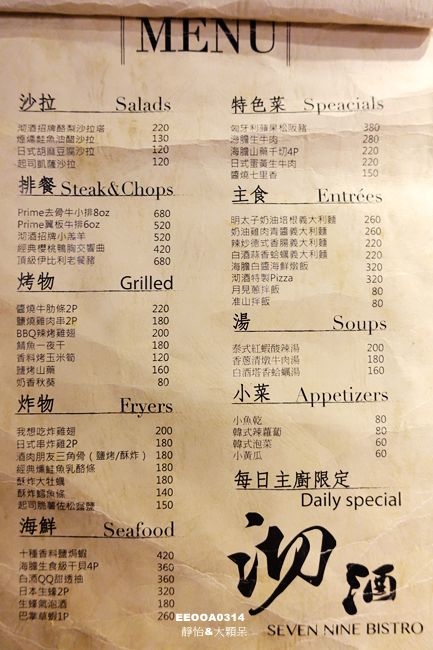 MENU
沙拉 Salads
沏酒招牌酪梨沙拉塔 220
煙燻鮭魚油醋沙拉 130
日式胡麻豆腐沙拉 120
起司凱薩沙拉 120
排餐 Steak&Chops
Prime去骨牛小排8oz 680
Prime翼板牛排6oz 520
沏酒招牌小羔羊 520
經典櫻桃鴨胸交響曲 420
頂級伊比利老饕豬 680
烤物 Grilled
醬燒牛肋條2P 220
鹽燒雞肉串2P 180
BBQ辣烤雞翅 200
鯖魚一夜干 180
香料烤玉米筍 120
鹽烤山藥 160
奶香秋葵 80
炸物 Fryers
我想吃炸雞翅 200
日式串炸雞2P 180
酒肉朋友三角骨(鹽烤/酥炸) 180
經典燻鮭魚乳酪條 180
酥炸大牡蠣 180
酥炸鱈魚條 140
起司脆薯佐松露鹽 150
海鮮 Seafood
十種香料鹽焗蝦 420
海膽生食級干貝4P 360
白酒QQ甜透抽 360
日本生蠔2P 320
生蠔氣泡酒 180
巴掌草蝦1P 260
特色菜 Speacials
匈牙利蘋果松阪豬 380
海膽生牛肉 280
海膽山藥千切4P 220
日式蛋黃生牛肉 220
醬燒七里香 150
主食 Entrées
明太子奶油培根義大利麵 260
奶油雞肉青醬義大利麵 260
辣炒德式香腸義大利麵 220
白酒蒜香蛤蠣義大利麵 220
海膽白醬海鮮燉飯 320
沏酒特製Pizza 320
月見蔥拌飯 80
准山拌飯 80
湯 Soups
泰式紅蝦酸辣湯 200
香蔥清燉牛肉湯 180
白酒塔香蛤蠣湯 160
小菜 Appetizers
小魚乾 80
韓式辣蘿蔔 80
韓式泡菜 60
小黃瓜 60
每日主廚限定
Daily special
沏酒
SEVEN NINE BISTRO
EEOOA0314
靜怡&大顆呆